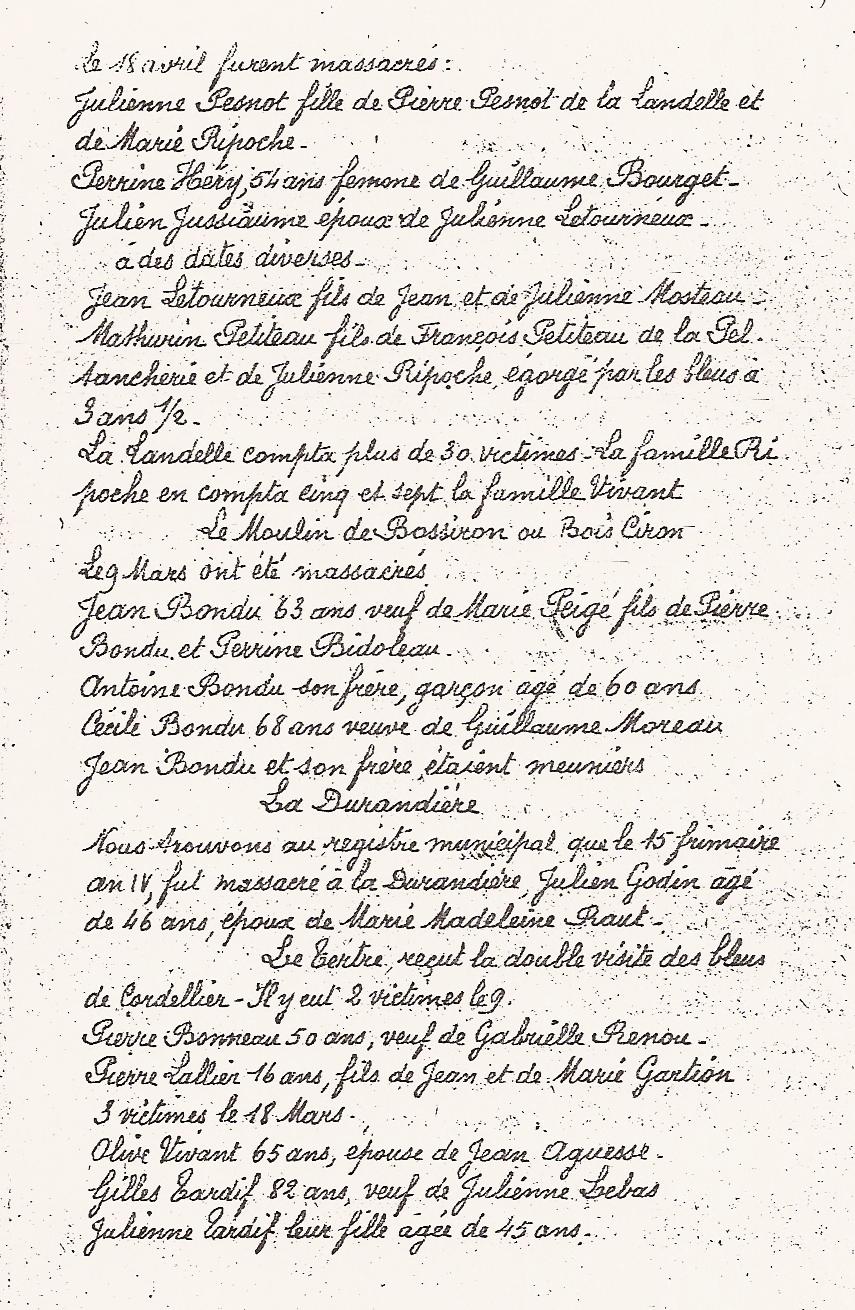 Le 18 avril furent massacrés :
Julienne Pesnot fille de Pierre Pesnot de la Landelle et
de Marie Ripoche -
Perrine Héry, 54 ans femme de Guillaume Bourget -
Julien Jussiaume époux de Julienne Letourneux -
à des dates diverses -
Jean Letourneux fils de Jean et de Julienne Mosteau -
Mathurin Petiteau fils de François Petiteau de la Pel -
tancherie et de Julienne Ripoche, égorgé par les bleus à
3 ans 1/2 -
La Landelle compta plus de 30 victimes - La famille Ri
poche en compta cinq et sept la famille Vivant
Le Moulin de Bossiron ou Bois Ciron
Le 9 Mars ont été massacrés
Jean Bondu 63 ans veuf de Marie Peigé fils de Pierre
Bondu et Perrine Bidoleau -
Antoine Bondu son frère, garçon âgé de 60 ans
Cécile Bondu 68 ans veuve de Guillaume Moreau
Jean Bondu et son frère étaient meuniers
La Durandière
Nous trouvons au registre municipal que le 15 frimaire
an IV, fut massacré à la Durandière Julien Godin âgé
de 46 ans, époux de Marie Madeleine Raut -
Le Tertre, reçut la double visite des bleus
de Cordellier - Il y eut 2 victimes le 9.
Pierre Bonneau 50 ans, veuf de Gabrielle Renou -
Pierre Lallier 16 ans, fils de Jean et de Marie Gartion
3 victimes le 18 Mars -
Olive Vivant 65 ans, épouse de Jean Aguesse -
Gilles Tardif 82 ans, veuf de Julienne Lebas
Julienne Tardif leur fille âgée de 45 ans -